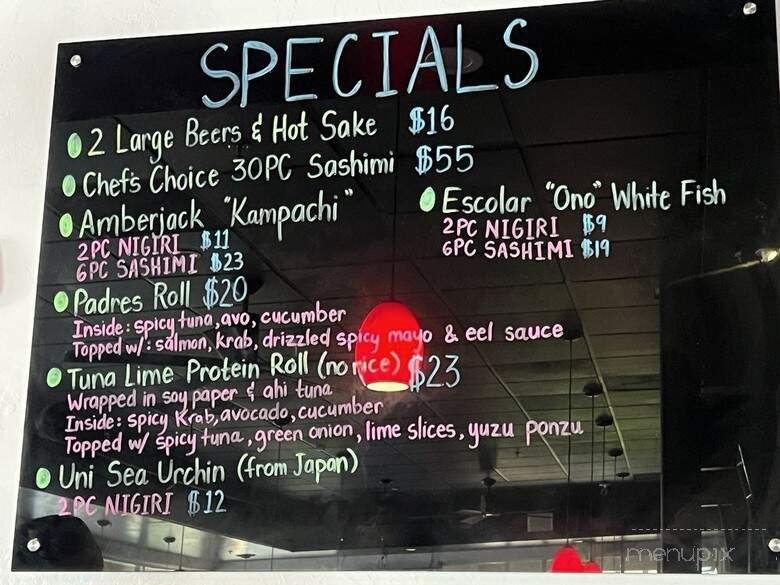 SPECIALS
2 Large Beers & Hot Sake $16
Chef's Choice 30PC Sashimi $55
Amberjack "Kampachi"
2PC NIGIRI $11
6PC SASHIMI $23
Escolar "Ono" White Fish
2PC NIGIRI $9
6PC SASHIMI $19
Padres Roll $20
Inside: spicy tuna, avo, cucumber
Topped w/: salmon, krab, drizzled spicy mayo & eel sauce
Tuna Lime Protein Roll (no rice) $23
Wrapped in soy paper & ahi tuna
Inside: spicy Krab, avocado, cucumber
Topped w/ spicy tuna, green onion, lime slices, yuzu ponzu
Uni Sea Urchin (from Japan)
2PC NIGIRI $12
menupix